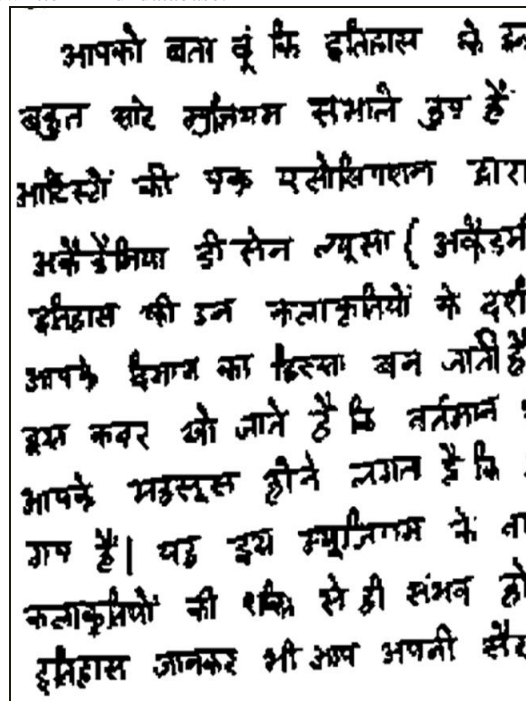 आपको बता दूं कि इतिहास के इन
बहुत सारे म्यूजियम संभाले हुए हैं
आर्टिस्टों की एक एसोसिएशन द्वारा
अकैडेमिया डी सेन ल्यूसा ( अकैडमी
इतिहास की उन कलाकृतियों के दर्श
आपके दिमाग का हिस्सा बन जाती है
इस कदर खो जाते है कि वर्तमान
आपके महसूस होने लगता है कि
गए हैं| यह इस म्यूजियम के
कलाकृतियों की शक्ति से ही संभव हो
इतिहास जानकर भी आप अपनी सैर